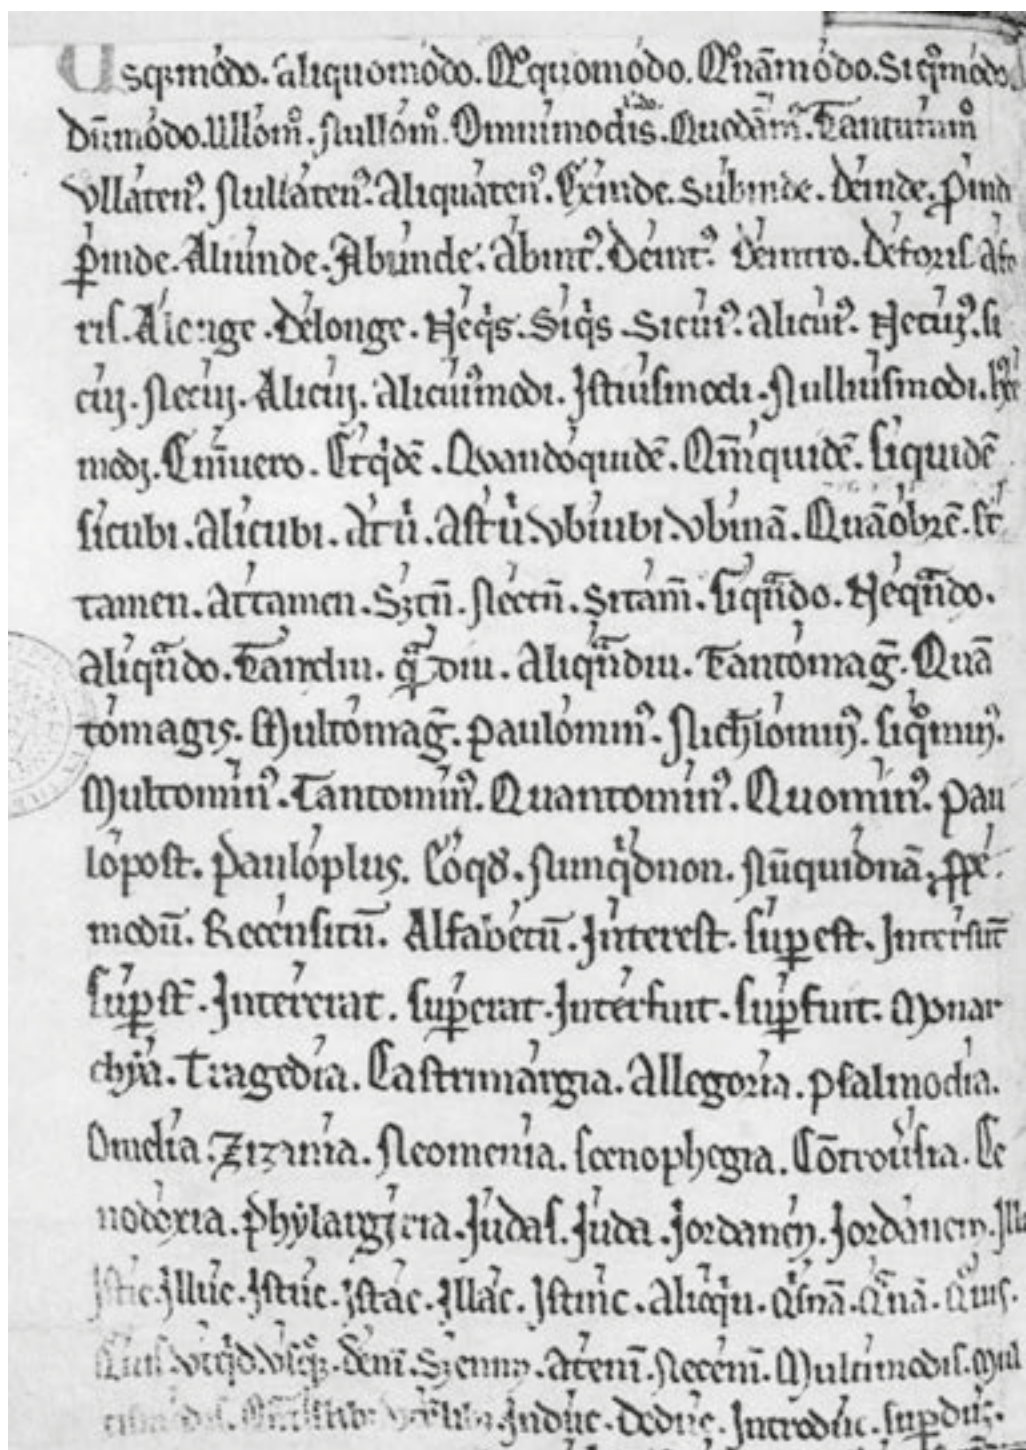 Usqꝫmódo. áliquomódo. Qͦquomódo. Qͦnāmódo. Siqͦmódo
Dūmódo. Ullómͦ. Nullómͦ. Omnímodis. Quodāmͦ. Tantúmmͦ
Ullátenꝰ. Nullátenꝰ. Aliquátenꝰ. Éxinde. Súbinde. Déinde. ꝓ́ind
ꝑ́inde. Aliúnde. Abúnde. Ábintꝰ. Déintꝰ. Déintro. Déforis. Áfo
ris. Álonge. Délonge. Néqͥs. Síqͥs. Sícuiꝰ. Alicuiꝰ. Nécuiꝰ. si
cui. Nécui. Álicui. alicuiꝰmodi. Istiúsmodi. Nulliúsmodi.
modi. Enīuero. Etqͥdē. Quandóquidē. Qm̄quidē. Síquidē
sícubi. álicubi. át ů. Ast ů. ubíubi. ubínā. Quāóbrē. st
tamen. áttamen. Sꝫtn̄. Néctn̄. Sitám̄. síqn̄do. Néqn̄do.
alíqn̄do. Tándiu. qᷓ́diu. Alíqn̄diu. Tantómaḡ. Quā
tómagis. Multómaḡ. paulóminꝰ. Nichilóminꝰ. síqͦminꝰ.
Multomínꝰ. Tantomínꝰ. Quantomínꝰ. Quomínꝰ. pau
lópost. paulóplus. Nunqͥdnon. Nūquídnā.
modū. Recénsitū. Alfabétū. Ínterest. súꝑest. Intérsūt
súꝑst̄. Intérerat. súꝑerat. Intérfuit. súꝑfuit. Monar
chýa. Tragedía. Castrimárgia. Allegoría. psalmodía.
Omelía. Zizánia. Neomenía. scenophegia. Cōtrovsía. Ce
nodóxia. phylargíria. Júdas. Júda. Jordaném. Jordánem. Ill
Istíc. Illúc. Istúc. istác. illác. Istínc. alíqͥ. Qͥ́snā. Qᷓ́nā. Qͣuis.
utqͥd. usqꝫ. Dénī. áténī. Nécénī. Multímodis. Mul
Indúc. Dedúc. Introdúc. suꝑdúc.